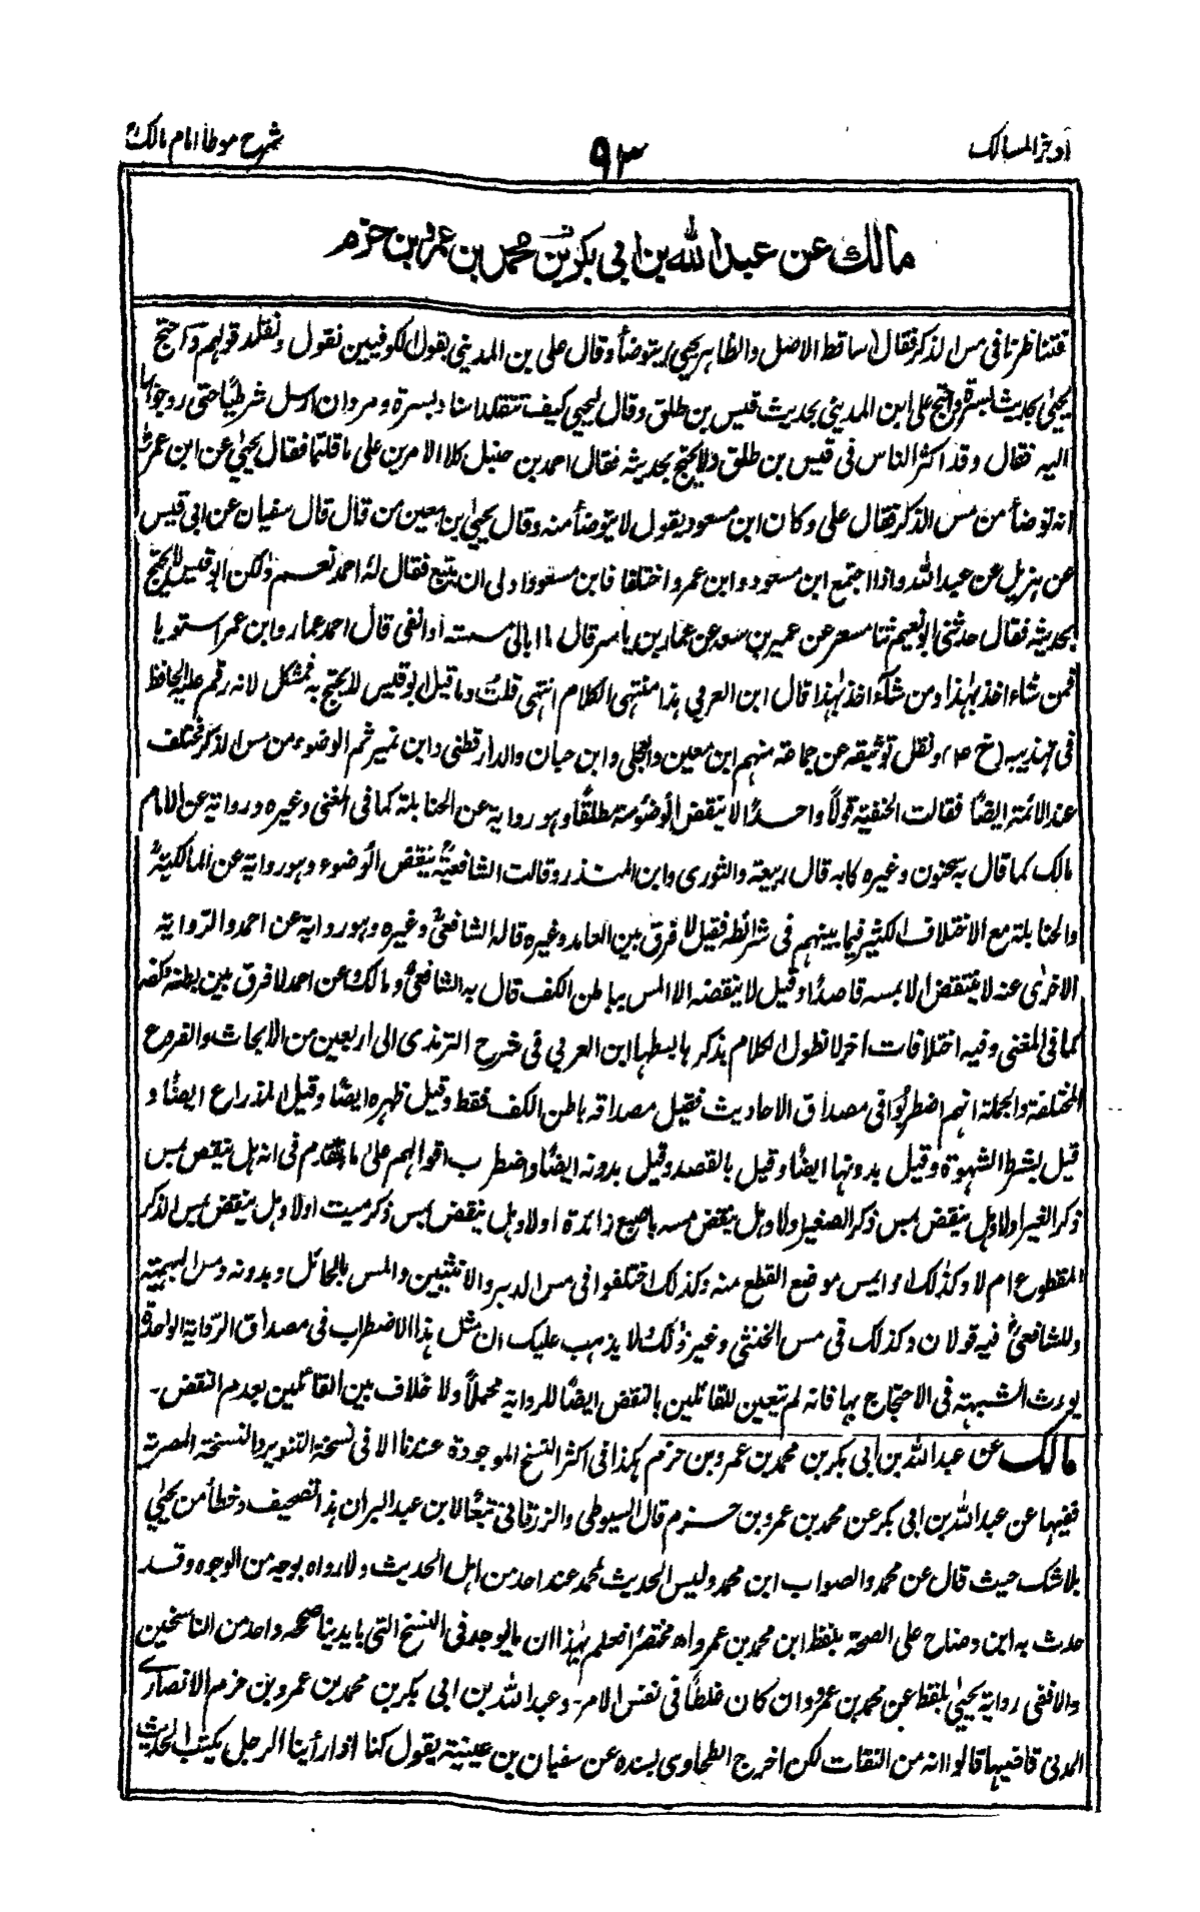 أوجز المسالک
٩٣
شرح موطأ امام مالکؒ
مالك عن عبد الله بن ابى بكر بن محمد بن عمرو بن حزم
فتناظرنا فی مس الذکر فقال (ساقط الاصل والظاہر یحیٰی) یتوضأ وقال علی بن المدینی بقول الکوفیین نقول ونقلد قولہم واحتج
یحیٰی بحدیث بسرة واحتج علی ابن المدینی بحدیث قیس بن طلق وقال لیحیی کیف تتقلد اسناد بسرة ومروان ارسل شرطیًا حتی رد جوابہا
الیہ فقال وقد اکثر الناس فی قیس بن طلق ولا یحتج بحدیثہ فقال احمد بن حنبل کلا الامرین علی ما قلتما فقال یحیٰی عن ابن عمر
انہ توضأ من مس الذکر فقال علی وکان ابن مسعود یقول لا یتوضأ منہ وقال یحیٰی بن معین من قال قال سفیان عن ابی قیس
عن ہزیل عن عبد اللہ واذا اجتمع ابن مسعود وابن عمر واختلفا فابن مسعود اولی ان یتبع فقال لہٗ احمد نعم ولکن ابو قیس لا یحتج
بحدیثہ فقال حدثنی ابو نعیم ثنا مسعر عن عمیر بن سعد عن عمار بن یاسر قال ما ابالی مسستہ او انفی قال احمد عمار وابن عمر استویا
فمن شاء اخذ بہٰذا ومن شاء اخذ بہٰذا قال ابن العربی ہذا منتہی الکلام انتہی قلتُ وما قیل ابو قیس لا یحتج بہ فمشکل لانہ رقم علیہ الحافظ
فی تہذیبہ (خ ۴) ونقل توثیقہ عن جماعة منہم ابن معین والعجلی وابن حبان والدارقطنی وابن نمیر ثم الوضوء من مس الذکر مختلف
عند الائمة ایضًا فقالت الحنفیة قولًا واحدًا لا ینقض الوضوء مطلقًا وہو روایة عن الحنابلة کما فی المغنی وغیرہ وروایة عن الامام
مالک کما قال بہ سحنون وغیرہ کابہ قال ربیعة والثوری وابن المنذر وقالت الشافعیة ینقض الوضوء وہو روایة عن المالکیة
والحنابلة مع الاختلاف الکثیر فیما بینہم فی شرائطہ فقیل لا فرق بین العامد وغیرہ قالہ الشافعیؒ وغیرہ وہو روایة عن احمد والروایة
الاخرٰی عنہ لا ینتقض الا بمسہ قاصدًا وقیل لا ینقضہ الا المس بباطن الکف قال بہ الشافعیؒ ومالکؒ وعن احمد لا فرق بین بطنہ وکفہ
کما فی المغنی وفیہ اختلافات اخر لا نطول الکلام بذکرہا بسطہا ابن العربی فی شرح الترمذی الی اربعین من الابحاث والفروع
المختلفة والجملة انہم اضطربوا فی مصداق الاحادیث فقیل مصداقہ باطن الکف فقط وقیل ظہرہ ایضًا وقیل الذراع ایضًا و
قیل بشرط الشہوة وقیل بدونہا ایضًا وقیل بالقصد وقیل بدونہ ایضًا واضطرب اقوالہم علی ما تقدم فی انہ ہل ینقض بمس
ذکر الغیر اولا وہل ینقض بمس ذکر الصغیر اولا وہل ینقض مسہ باصبع زائدة اولا وہل ینقض بمس ذکر میت اولا وہل ینقض بمس الذکر
المقطوع ام لا وکذلک لو ایمس موضع القطع منہ وکذلک اختلفوا فی مس الدبر والانثیین والمس بالحائل وبدونہ ومس البہیمة
وللشافعیؒ فیہ قولان وکذلک فی مس الخنثی وغیر ذٰلک لا یذہب علیک ان مثل ہذا الاضطراب فی مصداق الروایة الواحدة
یورث الشبہة فی الاحتجاج بہا فانہ لم یتعین للقائلین بالنقض ایضًا للروایة محملًا ولا خلاف بین القائلین بعدم النقض۔
مالک عن عبد اللہ بن ابی بکر بن محمد بن عمرو بن حزم ہکذا فی اکثر النسخ الموجودة عندنا الا فی نسخة التنویر والنسخة المصریة
ففیہا عن عبد اللہ بن ابی بکر عن محمد بن عمرو بن حزم قال السیوطی والزرقانی تبعًا لابن عبد البر ان ہذا تصحیف وخطأ من یحیٰی
بلا شک حیث قال عن محمد والصواب ابن محمد ولیس الحدیث لمحمد عند احد من اہل الحدیث ولا رواہ بوجہ من الوجوہ وقد
حدث بہ ابن وضاح علی الصحة بلفظ ابن محمد بن عمرو اھ مختصرًا فعلم بہٰذا ان ما یوجد فی النسخ التی بایدینا صححہ واحد من الناسخین
والا ففی روایة یحیٰی بلفظ عن محمد بن عمرو وان کان غلطًا فی نفس الامر۔ وعبد اللہ بن ابی بکر بن محمد بن عمرو بن حزم الانصاری
المدنی قاضیہا قالوا انہ من الثقات لکن اخرج الطحاوی بسندہ عن سفیان بن عیینة یقول کنا اذا رأینا الرجل یکتب الحدیث